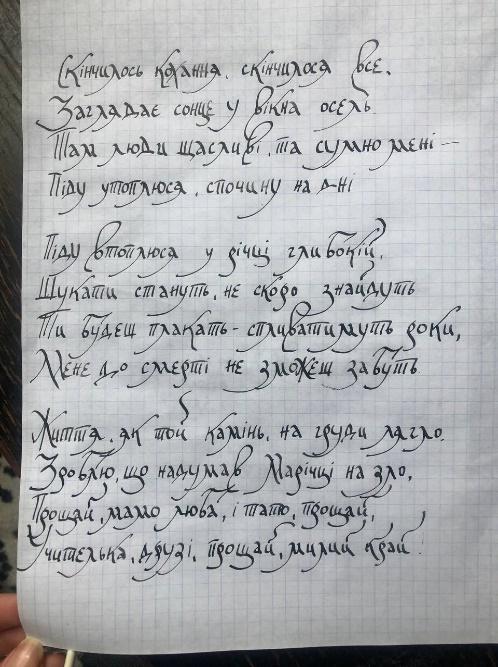 Скінчилось кохання, скінчилося все,
Заглядає сонце у вікна осель.
Там люди щасливі, та сумно мені —
Піду утоплюся, спочину на дні

Піду втоплюся у річці глибокій,
Шукати стануть, не скоро знайдуть
Ти будеш плакать - спливатимуть роки,
Мене до смерті не зможеш забуть

Життя, як той камінь, на груди лягло.
Зроблю, що надумав Марічці на зло,
Прощай, мамо люба, і тато, прощай,
Учителька, друзі, прощай, милий край!